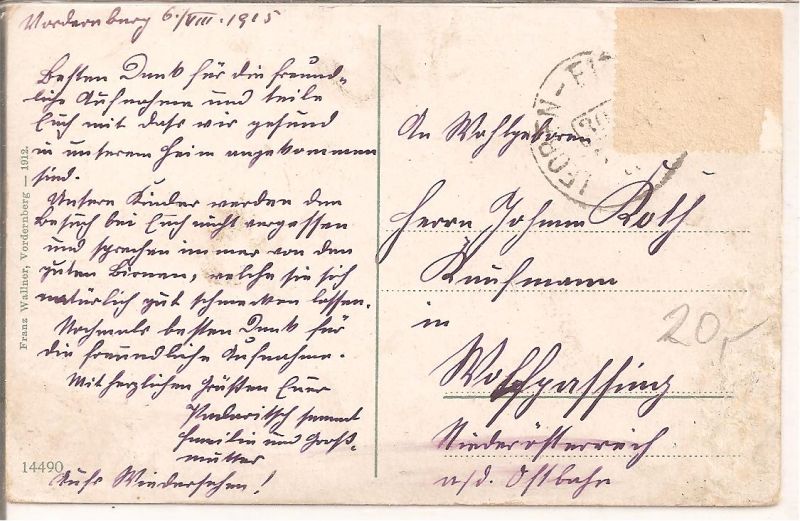 Vordernberg 6./VIII. 1915
Besten Dank für die freund-
liche Aufnahme und teile
Euch mit dass wir gesund
in unserem Heim angekommen
sind.
Unsere Kinder werden den
Besuch bei Euch nicht vergessen
und sprechen immer von den
guten Birnen, welche sie sich
natürlich gut schmecken lassen.
Nochmals besten Dank für
die freundliche Aufnahme.
Mit herzlichen Grüßen Euer
samt
Familie und Groß-
mutter
Aufs Wiedersehen!
14490
Franz Wallner, Vordernberg — 1912.
LEOBEN-
An Wohlgeboren
Herrn Johann Roth
Kaufmann
in
Wolfpassing
Niederösterreich
a/d. Ostbahn
20,-